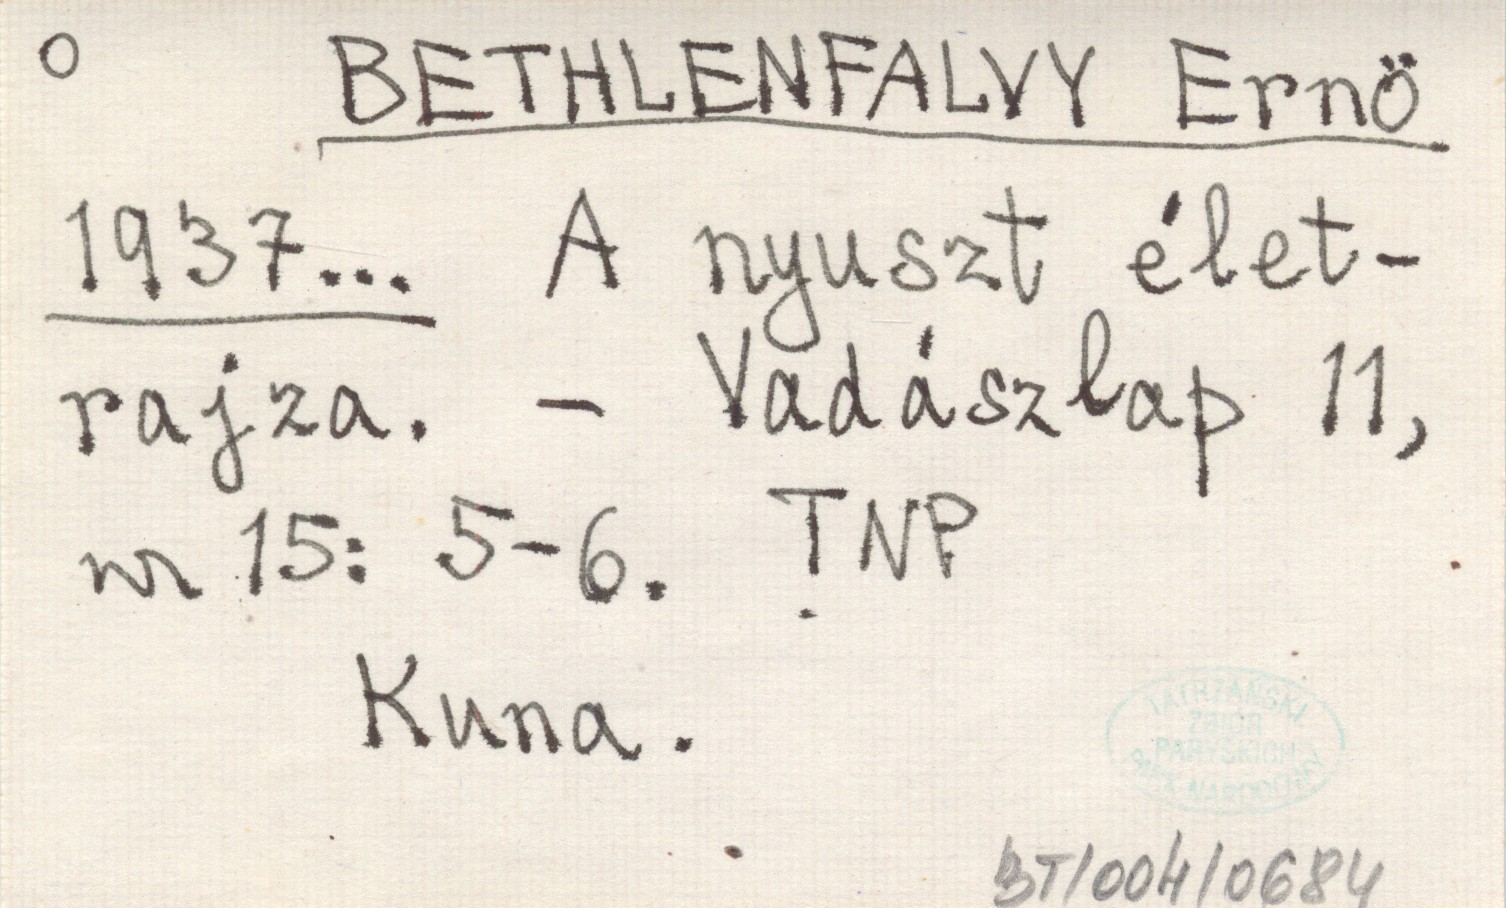 o BETHLENFALVY Ernö
1937... A nyuszt élet-
rajza. - Vadászlap 11,
nr 15: 5-6. TNP
Kuna.
TATRZAŃSKI
ZBIÓR
PARYSKICH
PARK NARODOWY
BT/004/0684